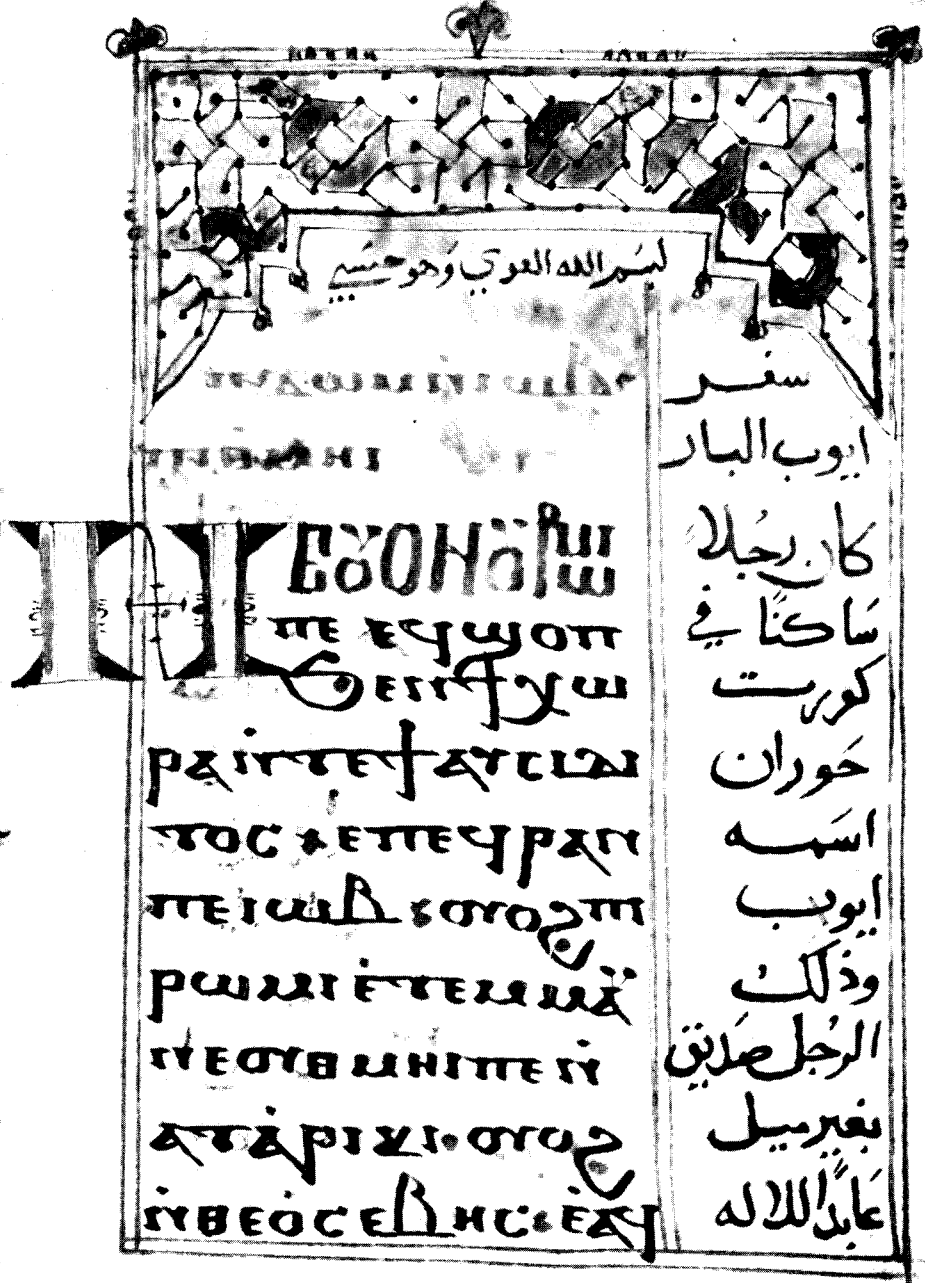 بسم الله القوي وهو حسبي
ⲛⲉⲟⲩⲟⲛⲟⲩⲣⲱⲙⲓ
ⲡⲉ ⲉϥϣⲟⲡ
ϧⲉⲛϯⲭⲱ
ⲣⲁ ⲛ̀ⲧⲉϯⲁⲩⲥⲓⲇⲓ
ⲧⲟⲥ ϫⲉⲡⲉϥⲣⲁⲛ
ⲡⲉ ⲓⲱⲃ : ⲟⲩⲟϩ ⲡⲓ
ⲣⲱⲙⲓ ⲉ̀ⲧⲉⲙⲙⲁⲩ
ⲛⲉ ⲟⲩⲑⲙⲏⲓ ⲡⲉ ⲛ̀
ⲁⲧⲁ̀ⲣⲓⲕⲓ · ⲟⲩⲟϩ
ⲛ̀ⲑⲉⲟ̀ⲥⲉⲃⲏⲥ · ⲉ̀ⲁϥ
سفر
ايوب البار
كان رجلا
ساكنًا في
كورت
حَوران
اسمه
ايوب
وذلك
الرجل صديق
بغير ميل
عَابدًا للاله